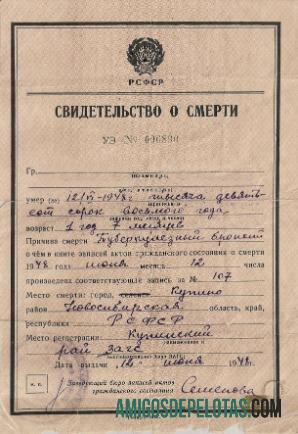 РСФСР
СВИДЕТЕЛЬСТВО О СМЕРТИ
УЭ № 006830
Гр.
умер (ла) 12/VI-1948г тысяча девять
сот сорок восьмого года
возраст 1 год 7 месяцев
Причина смерти Туберкулезный бронхит
о чём в книге записей актов гражданского состояния о смерти
1948 года июня месяца 12 числа
произведена соответствующая запись за № 107
Место смерти: город, селение Купино
район Новосибирская область, край,
республика РСФСР
Место регистрации: Купинский
рай загс
Дата выдачи 12 июня 1948г.
М. П.
Заведующий бюро записей актов
гражданского состояния Семенова
AMIGOSDEPELOTAS.COM